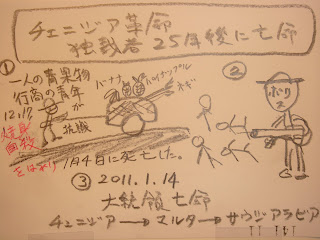 チェニジア革命
独裁者25年後に亡命
①
一人の青果物
行商の青年が
12.17
抗議
焼身
自殺
をはかり
バナナ
パイナップル
ネギ
1月4日に死亡した。
②
ポリス
③ 2011.1.14
大統領亡命
チュニジア→マルタ→サウジアラビア